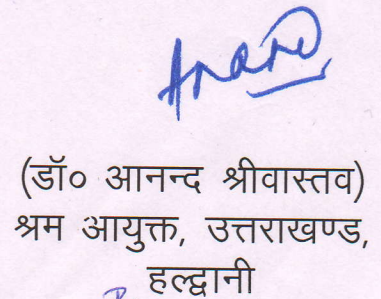 Anand
(डॉ० आनन्द श्रीवास्तव)
श्रम आयुक्त, उत्तराखण्ड,
हल्द्वानी